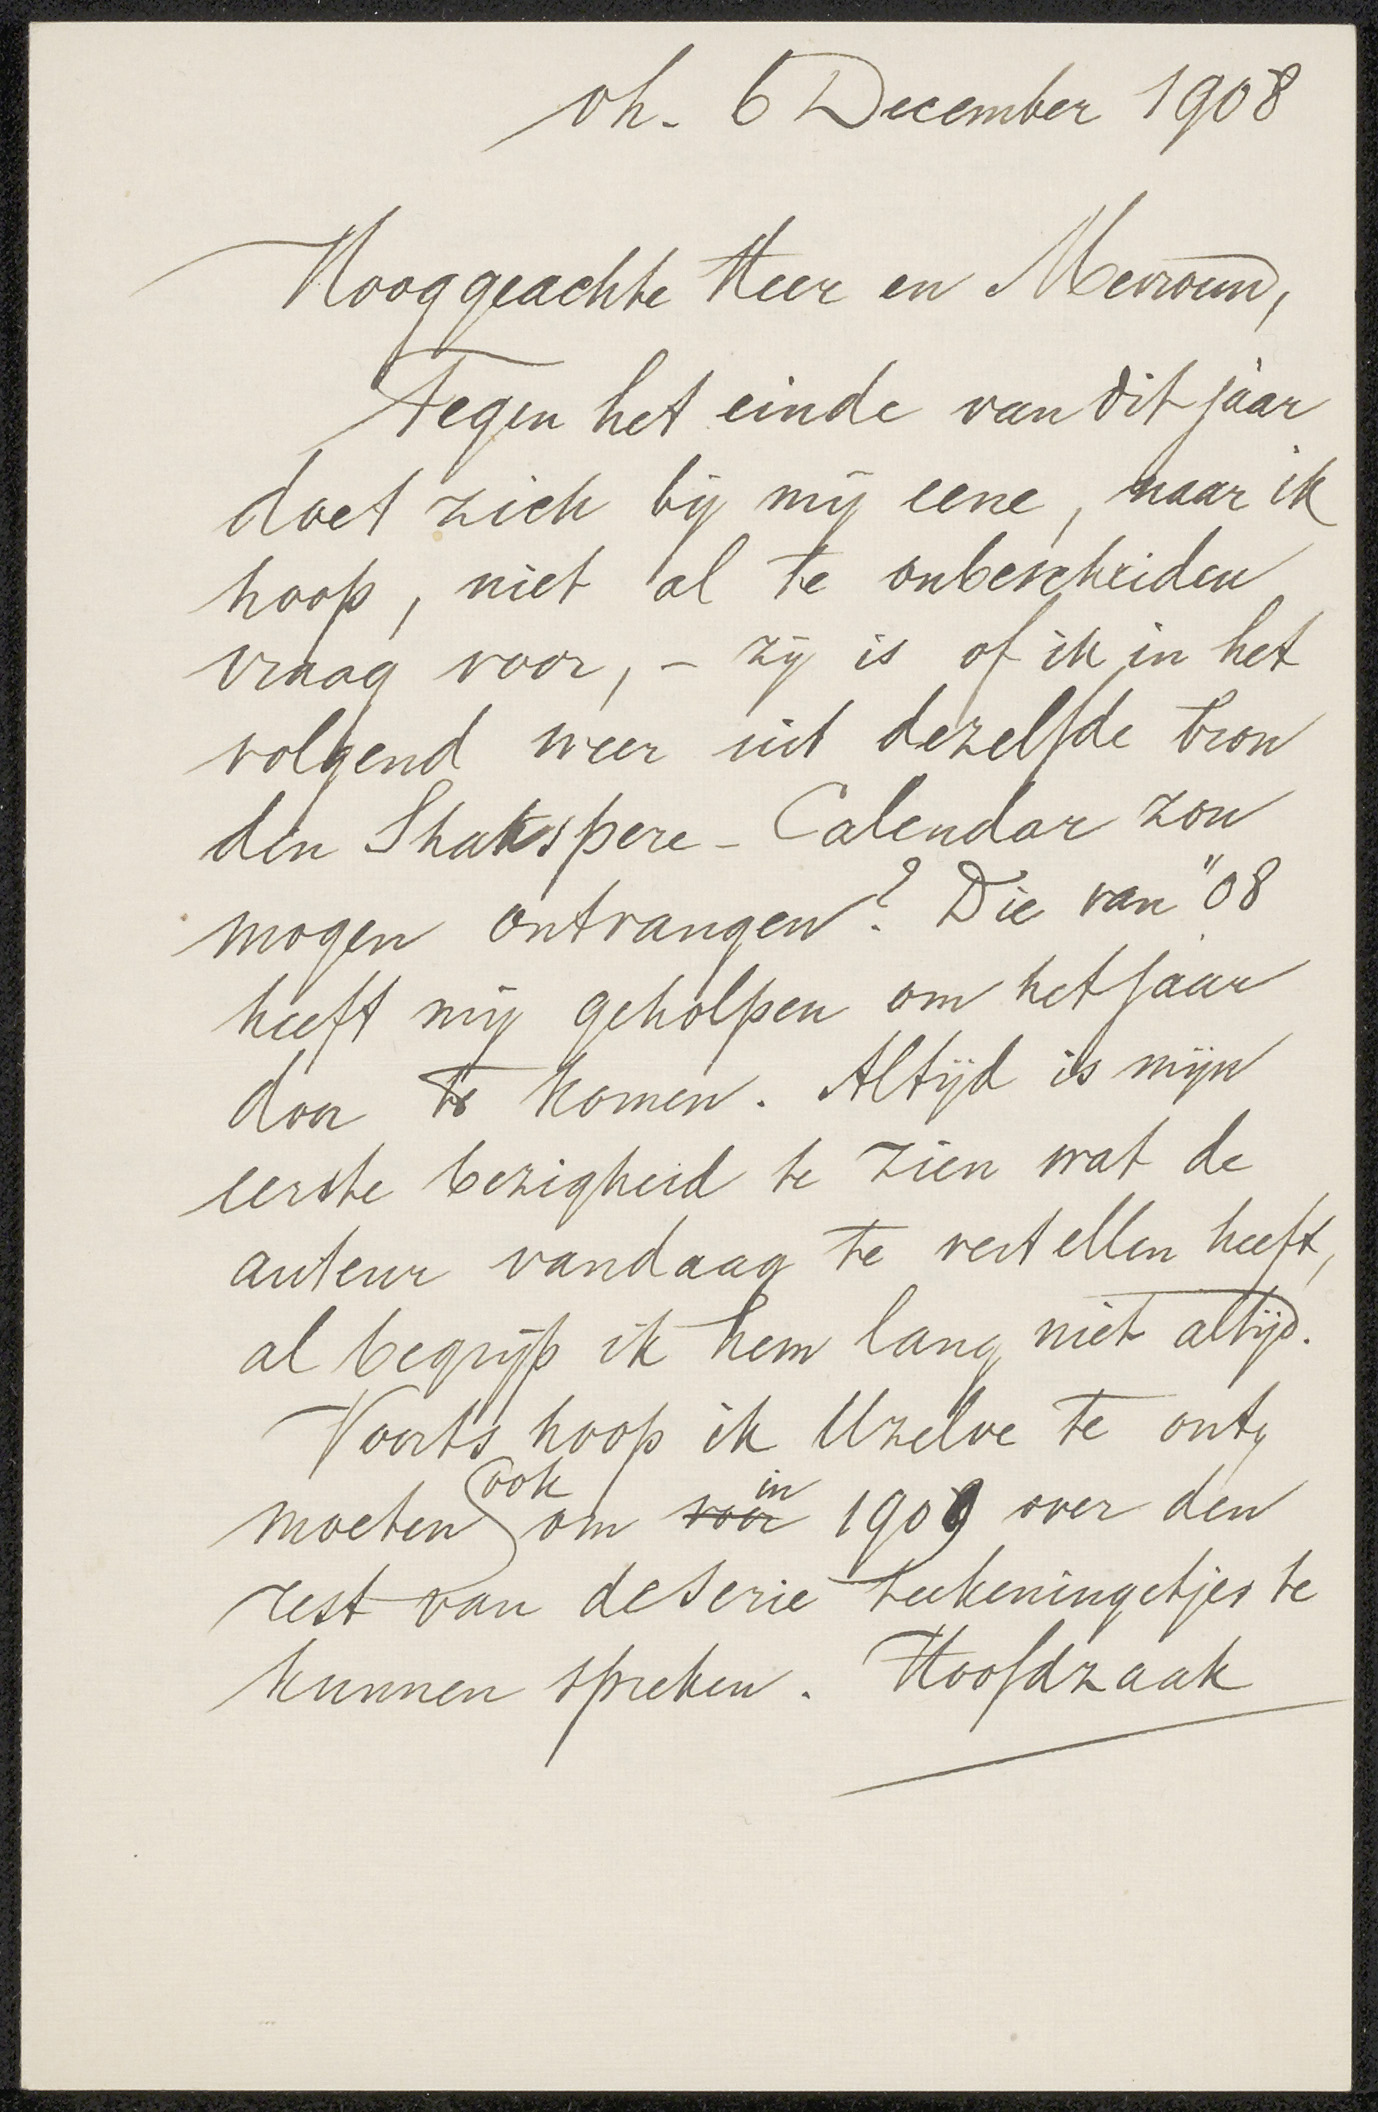 oh. 6 December 1908
Hooggeachte Heer en Mevrouw,
Tegen het einde van dit jaar
doet zich bij mij eene, naar ik
hoop, niet al te onbescheiden
vraag voor, – zij is of ik in het
volgend weer uit dezelfde bron
den Shakspere – Calendar zou
mogen ontvangen? Die van "08
heeft mij geholpen om het jaar
door te komen. Altijd is mijn
eerste bezigheid te zien wat de
auteur vandaag te vertellen heeft,
al begrijp ik hem lang niet altijd.
Voorts hoop ik Uzelve te ont,
moeten ook om voor in 1909 over den
rest van de serie teekeningetjes te
kunnen spreken. Hoofdzaak